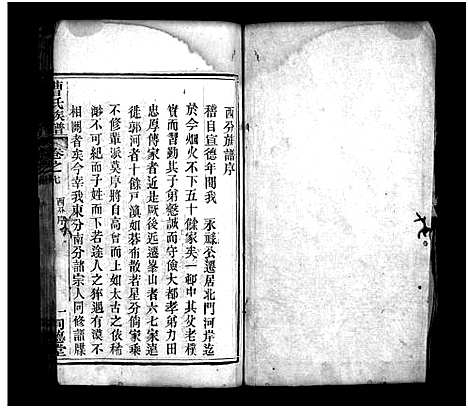 西分族譜序
稽自宣德年間我 永祿公遷居北門河岸迄
於今烟火不下五十餘家矣一郷中其父老樸
實而習勤其子弟愁誠而守儉大都孝弟力田
忠厚傳家者近是厥後近遷峯山者六七家遠
徙郭河者十餘戸滇如碁布散若星分倘家乘
不修輩派莫序將自高曾而上如太古之依稀
渺不可紀而子姓而下若途人之猝遇有漠不
相關者矣今幸我東分南分諸宗人同修譜牒
曹氏族譜
卷之九
西分序
一
同德堂